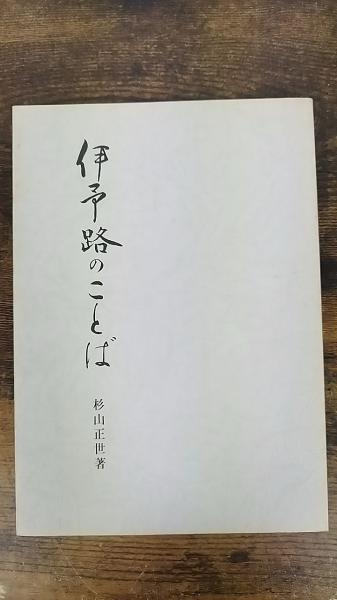 伊予路のことば
杉山正世著